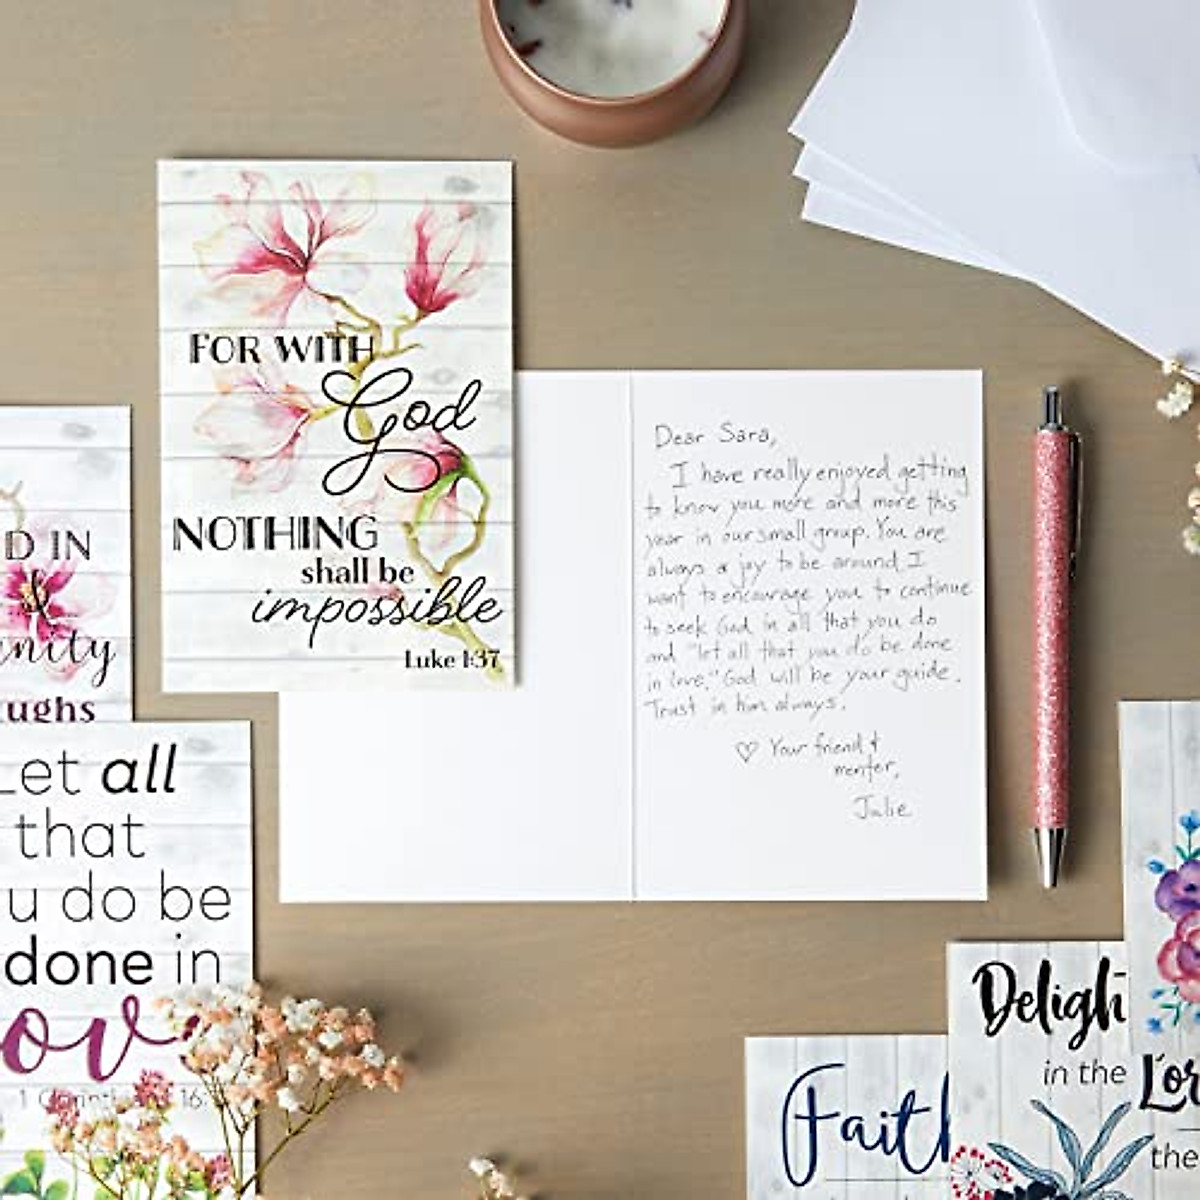 FOR WITH
God
NOTHING
shall be
impossible
Luke 1:37
Dear Sara,
I have really enjoyed getting
to know you more and more this
year in our small group. You are
always a joy to be around. I
want to encourage you to continue
to seek God in all that you do
and "let all that you do be done
in love." God will be your guide.
Trust in him always.
♡ Your friend &
mentor,
Julie
D IN
&
nity
ughs
Let all
that
u do be
done in
ov
1 Corinth 16:
Faith
Deligh
in the
Lor
the